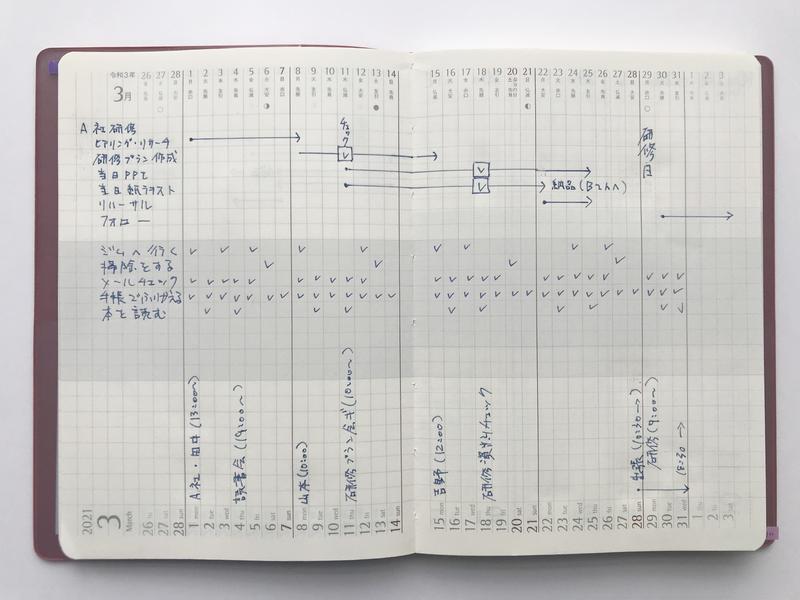 令和3年
3月
26 27 28 1 2 3 4 5 6 7 8 9 10 11 12 13 14
15 16 17 18 19 20 21 22 23 24 25 26 27 28 29 30 31 1 2 3
チェック
研修日
A社研修
ヒアリング・リサーチ
研修プラン作成
当日PPT
当日紙テキスト
納品(Bさんへ)
リハーサル
フォロー
ジムへ行く
掃除をする
メールチェック
手帳でふりかえる
本を読む
A社・田中(13:00〜)
読書会(19:00〜)
山本(10:00)
研修プラン会ぎ(10:00〜)
吉野(12:00)
研修資料チェック
出張(10:30→)
研修(9:00〜)
18:30→
2021
3
March
26 fri
27 sat
28 sun
1 mon
2 tue
3 wed
4 thu
5 fri
6 sat
7 sun
8 mon
9 tue
10 wed
11 thu
12 fri
13 sat
14 sun
15 mon
16 tue
17 wed
18 thu
19 fri
20 sat
21 sun
22 mon
23 tue
24 wed
25 thu
26 fri
27 sat
28 sun
29 mon
30 tue
31 wed
1 thu
2 fri
3 sat